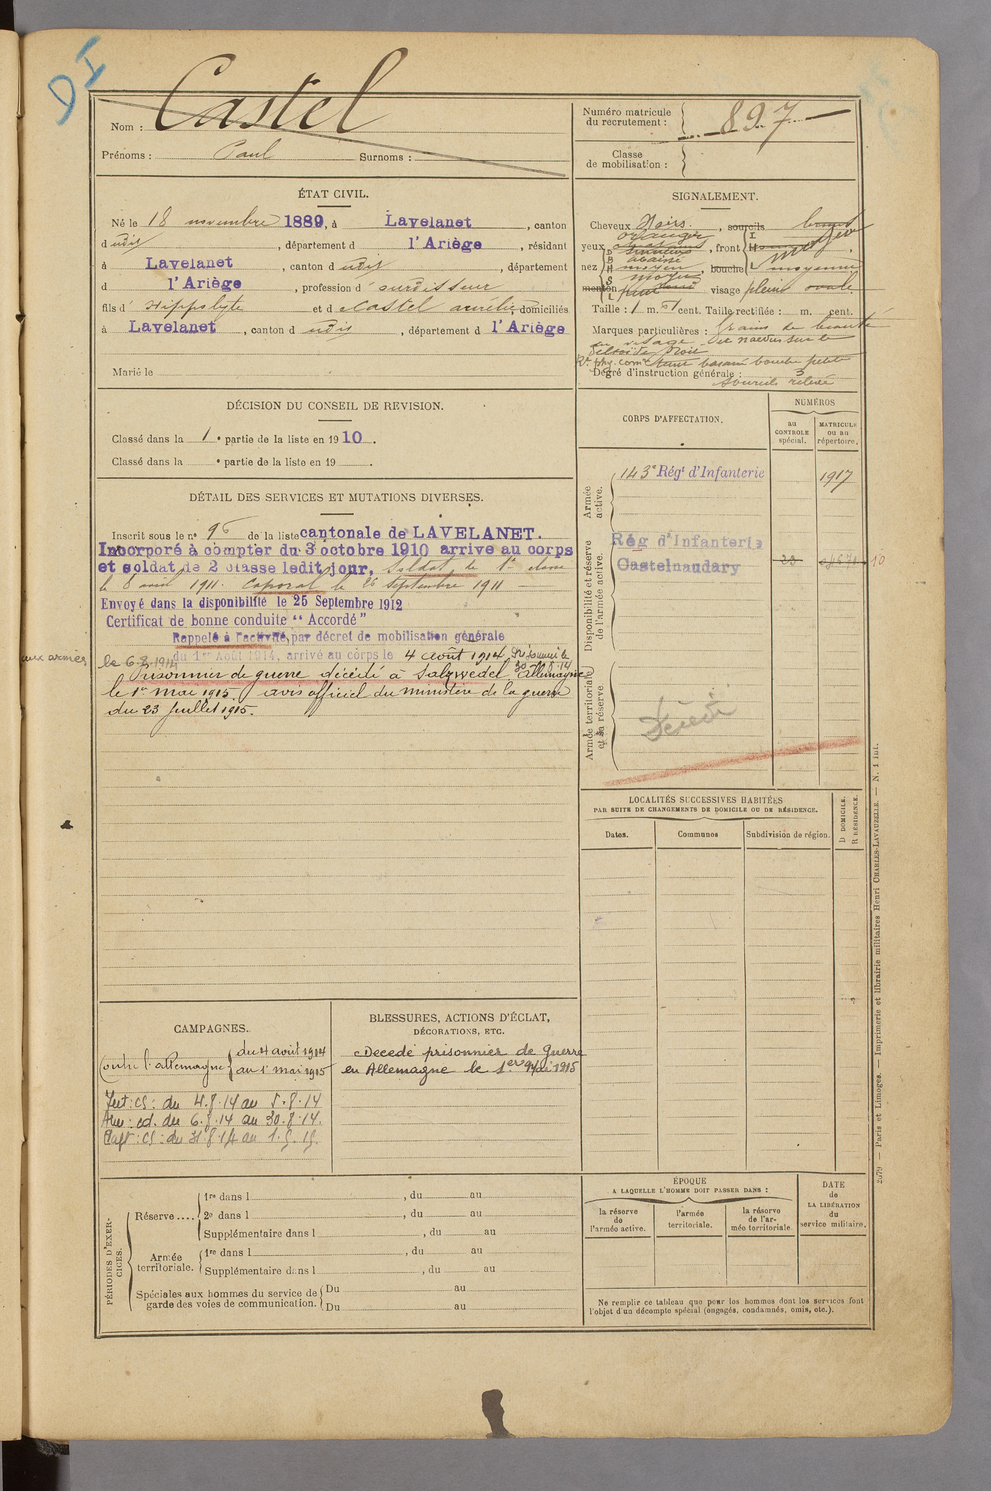 DI
Nom : Castel
Prénoms : Paul Surnoms :
Numéro matricule du recrutement : 897
Classe de mobilisation :
ÉTAT CIVIL.
Né le 18 novembre 1889, à Lavelanet, canton
dudit, département d l'Ariège, résidant
à Lavelanet, canton dudit, département
d l'Ariège, profession d'ourdisseur
fils d'Hippolyte et d Castel Aurélie domiciliés
à Lavelanet, canton dudit, département d l'Ariège
Marié le
SIGNALEMENT.
Cheveux Noirs. , sourcils bruns
yeux oranger , front
nez moyen , bouche moyenne
menton visage plein ovale
Taille : 1 m. 61 cent. Taille rectifiée : m. cent.
Marques particulières : Grains de beauté
au visage et naevus sur le
deltoïde
bouche petite
Degré d'instruction générale : 3
sourcils
DÉCISION DU CONSEIL DE REVISION.
Classé dans la 1e partie de la liste en 1910.
Classé dans la e partie de la liste en 19 .
DÉTAIL DES SERVICES ET MUTATIONS DIVERSES.
Inscrit sous le n° 96 de la liste cantonale de LAVELANET.
Incorporé à compter du 3 octobre 1910 arrive au corps
et soldat de 2 classe ledit jour, Soldat de 1e classe
le 8 avril 1911. Caporal le 26 Septembre 1911
Envoyé dans la disponibilité le 25 Septembre 1912
Certificat de bonne conduite "Accordé"
Rappelé à l'activité par décret de mobilisation générale
du 1er Août 1914, arrivé au corps le 4 août 1914, Prisonnier le
aux armées le 6.8.1914 30.8.14
Prisonnier de guerre décédé à Salzwedel Allemagne
le 1er mai 1915. avis officiel du ministère de la guerre
du 23 Juillet 1915.
CORPS D'AFFECTATION.
NUMÉROS
au CONTROLE spécial.
MATRICULE ou au répertoire.
Armée active.
143e Régt d'Infanterie 1917
Disponibilité et réserve de l'armée active.
Rég d'Infanterie
Castelnaudary
Armée territoriale et sa réserve
Décédé
LOCALITÉS SUCCESSIVES HABITÉES
PAR SUITE DE CHANGEMENTS DE DOMICILE OU DE RÉSIDENCE.
Dates. Communes Subdivision de région.
D DOMICILE.
R RÉSIDENCE.
CAMPAGNES.
Contre l'Allemagne du 4 août 1914
au 1er mai 1915
Int : CS : du 4.8.14 au 5.8.14
Arm : cd. du 6.8.14 au 30.8.14.
Capt : CS : du 31.8.14 au 1.5.15.
BLESSURES, ACTIONS D'ÉCLAT,
DÉCORATIONS, ETC.
Décédé prisonnier de Guerre
en Allemagne le 1er Mai 1915
PÉRIODES D'EXERCICES.
Réserve ....
1re dans l , du au
2e dans l , du au
Supplémentaire dans l , du au
Armée territoriale.
1re dans l , du au
Supplémentaire dans l , du au
Spéciales aux hommes du service de garde des voies de communication.
Du au
Du au
ÉPOQUE
A LAQUELLE L'HOMME DOIT PASSER DANS :
la réserve de l'armée active.
l'armée territoriale.
la réserve de l'armée territoriale.
DATE de LA LIBÉRATION du service militaire.
Ne remplir ce tableau que pour les hommes dont les services font
l'objet d'un décompte spécial (engagés, condamnés, omis, etc.).
2679 — Paris et Limoges. — Imprimerie et librairie militaires Henri CHARLES-LAVAUZELLE. — N. 1 int.